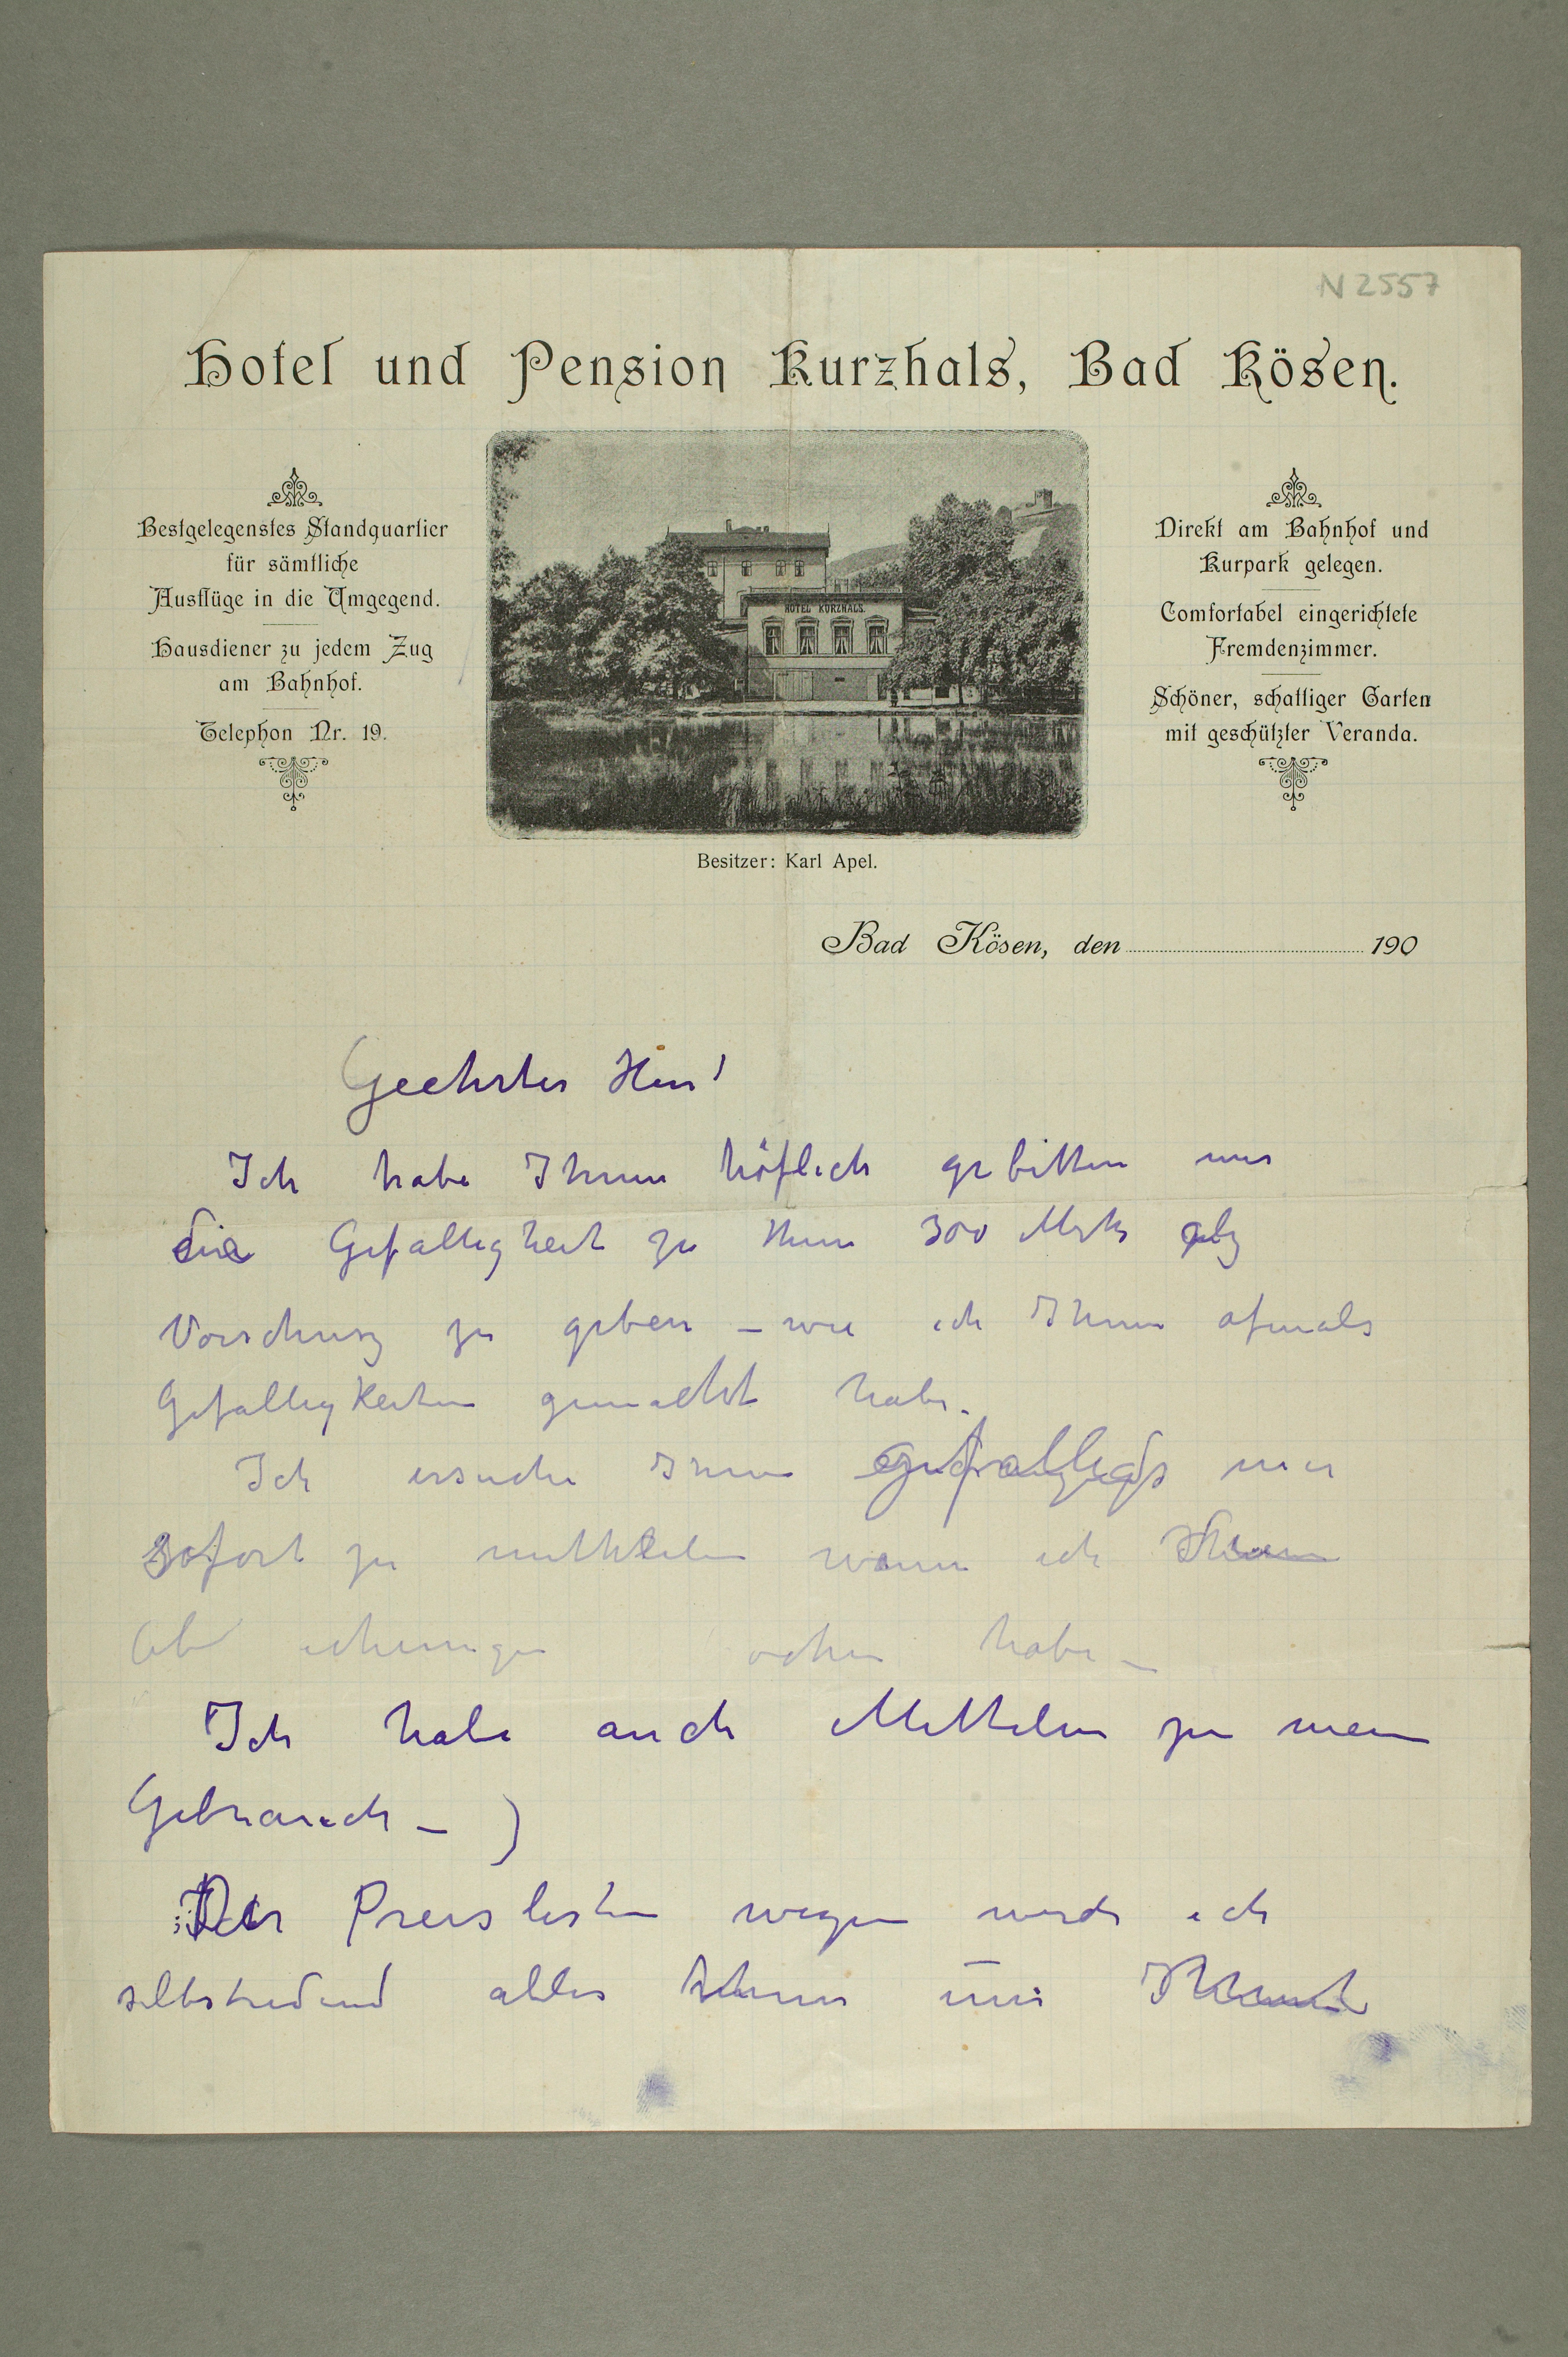 N 2557
Hotel und Pension Kurzhals, Bad Kösen.
Bestgelegenstes Standquartier
für sämtliche
Ausflüge in die Umgegend.
Hausdiener zu jedem Zug
am Bahnhof.
Telephon Nr. 19.
HOTEL KURZHALS.
Direkt am Bahnhof und
Kurpark gelegen.
Comfortabel eingerichtete
Fremdenzimmer.
Schöner, schattiger Garten
mit geschützter Veranda.
Besitzer: Karl Apel.
Bad Kösen, den 190
Geehrter Herr!
Ich habe Ihnen höflich gebitten mir
die Gefälligheit zu thun 300 Mrk als
Vorschusz zu geben – wie ich Ihnen ofmals
Gefälligkeiten gemacht habe.
Ich ersuche Ihnen gefälligs mir
sofort zu mittheilen wann ich
habe –
Ich habe auch Mittelen zu mein
Gebrauch – )
Der Preislisten wegen werde ich
selbstredend alles